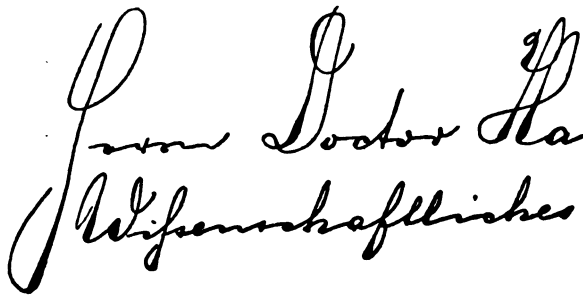 Herrn Doctor Ha
Wissenschaftliches